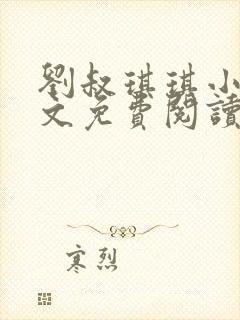 劉叔琪琪小
文免費閱讀
寒烈